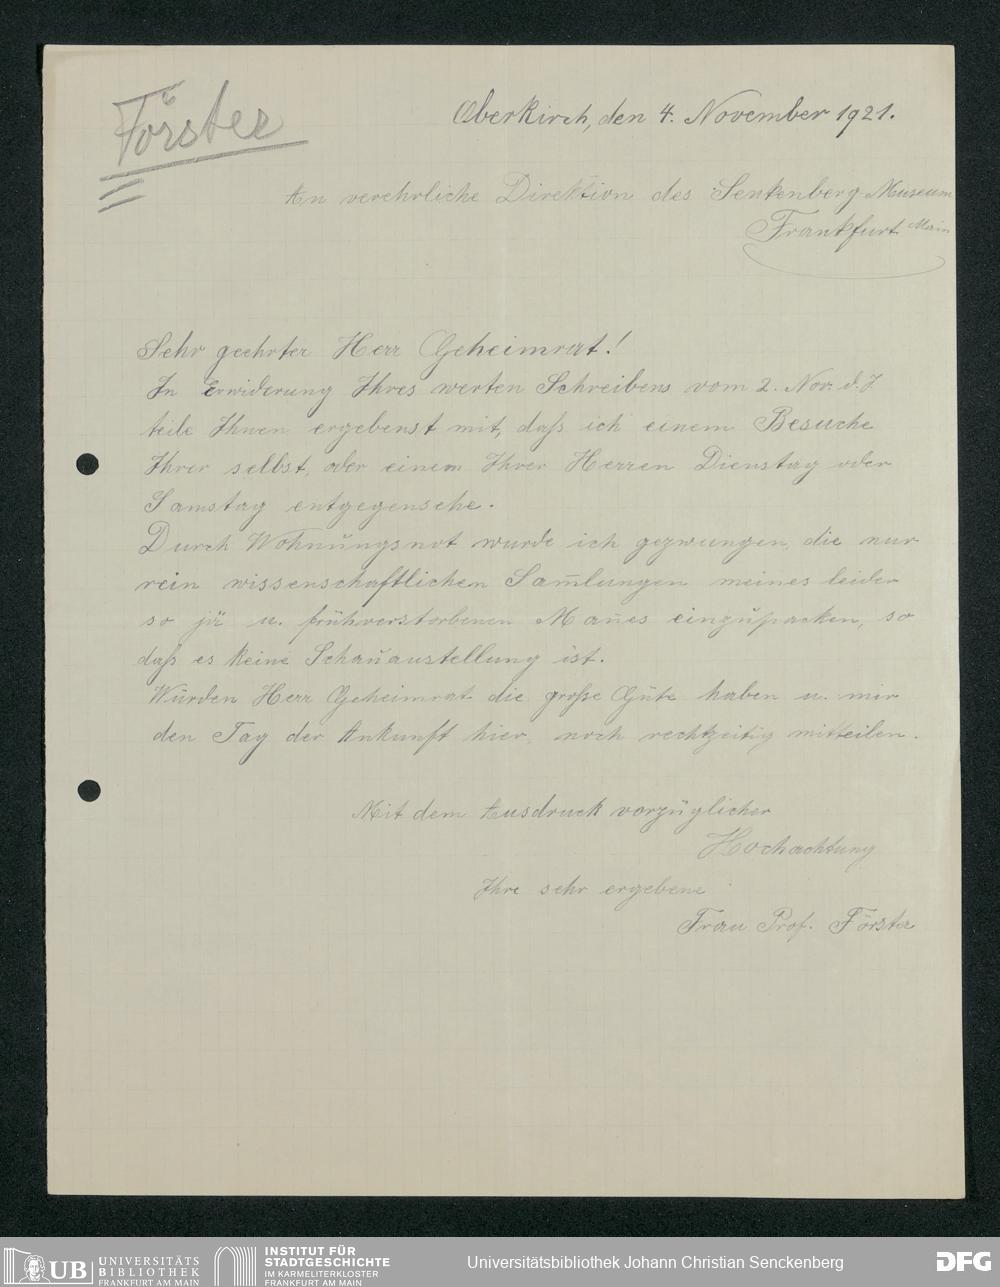 Förster
Oberkirch, den 4. November 1921.
An verehrliche Direktion des Senkenberg-Museum
Frankfurt Main
Sehr geehrter Herr Geheimrat!
In Erwiderung Ihres werten Schreibens vom 2. Nov. d. J.
teile Ihnen ergebenst mit, daß ich einem Besuche
Ihrer selbst, oder einem Ihrer Herren Dienstag oder
Samstag entgegensehe.
Durch Wohnŭngsnot wurde ich gezwungen, die nur
rein wissenschaftlichen Sam̅lungen meines leider
so jä u. frühverstorbenen Man̅es einzŭpacken, so
daß es keine Schaŭaustellung ist.
Würden Herr Geheimrat die große Güte haben u. mir
den Tag der Ankunft hier, noch rechtzeitig mitteilen.
Mit dem Ausdruck vorzüglicher
Hochachtung
Ihre sehr ergebene
Frau Prof. Förster
UB UNIVERSITÄTS
BIBLIOTHEK
FRANKFURT AM MAIN
INSTITUT FÜR
STADTGESCHICHTE
IM KARMELITERKLOSTER
FRANKFURT AM MAIN
Universitätsbibliothek Johann Christian Senckenberg
DFG